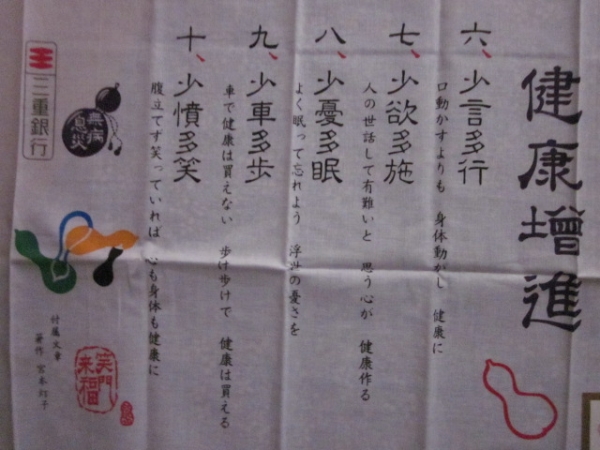 健康増進
六、少言多行
口動かすよりも 身体動かし 健康に
七、少欲多施
人の世話して有難いと 思う心が 健康作る
八、少憂多眠
よく眠って忘れよう 浮世の憂さを
九、少車多歩
車で健康は買えない 歩け歩けで 健康は買える
十、少憤多笑
腹立てず笑っていれば 心も身体も健康に
三重銀行
無病息災
付属文章
著作 宮本幻子
笑門来福